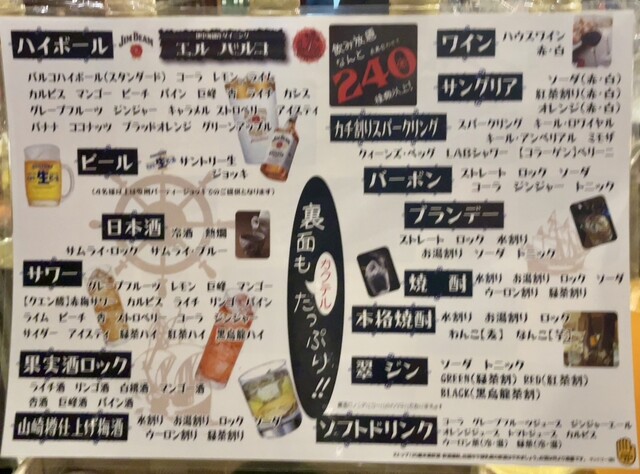 ハイボール
JIM BEAM
エル バルコ
バルコハイボール(スタンダード) コーラ レモン ライム
カルピス マンゴー ピーチ パイン 巨峰 杏 ライチ カシス
グレープフルーツ ジンジャー キャラメル ストロベリー アイスティ
バナナ ココナッツ ブラッドオレンジ グリーンアップル
ビール
サントリー生
ジョッキ
日本酒
冷酒 熱燗
サムライ・ロック サムライ・ブルー
サワー
グレープフルーツ レモン 巨峰 マンゴー
【クエン酸】赤梅サワー カルピス ライチ リンゴ パイン
ライム ピーチ 杏 ストロベリー コーラ ジンジャー
サイダー アイスティ 緑茶ハイ 紅茶ハイ 黒烏龍ハイ
果実酒ロック
ライチ酒 リンゴ酒 白桃酒 マンゴー酒
杏酒 巨峰酒 パイン酒
山崎樽仕上げ梅酒
水割り お湯割り ロック ソーダ
ウーロン割り 緑茶割り
飲み放題
なんと
240
種類以上!
裏面も
カクテル
たっぷり!!
ワイン
ハウスワイン
赤・白
サングリア
ソーダ(赤・白)
紅茶割り(赤・白)
オレンジ(赤・白)
カチ割りスパークリング
スパークリング キール・ロワイヤル
キール・アンペリアル ミモザ
クィーンズ・ペッグ LABシャワー 【コラーゲン】ベリーニ
バーボン
ストレート ロック ソーダ
コーラ ジンジャー トニック
ブランデー
ストレート ロック 水割り
お湯割り ソーダ トニック
焼酎
水割り お湯割り ロック ソーダ
ウーロン割り 緑茶割り
本格焼酎
水割り お湯割り ロック
わんこ【麦】 なんこ【芋】
翠 ジン
ソーダ トニック
GREEN(緑茶割) RED(紅茶割)
BLACK(黒烏龍茶割)
ソフトドリンク
コーラ グレープフルーツジュース ジンジャーエール
オレンジジュース トマトジュース カルピス
ウーロン茶(冷・温) 緑茶(冷・温)